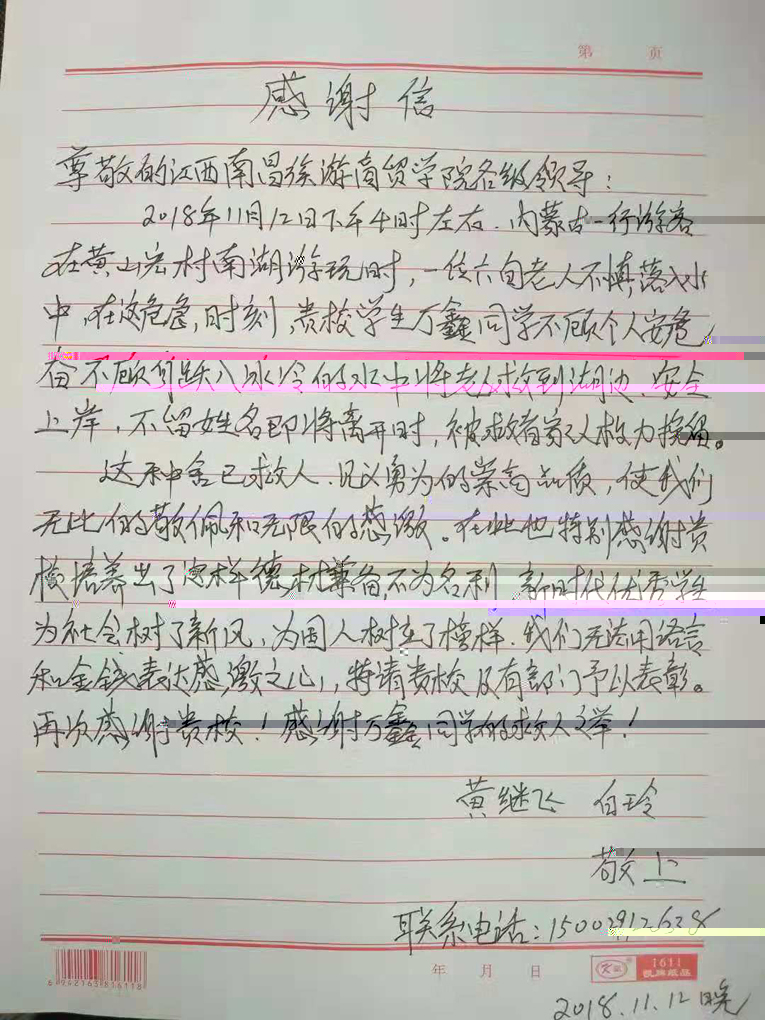 第 页
感谢信
尊敬的江西南昌旅游商贸学院各级领导：
2018年11月12日下午4时左右，内蒙古一行游客
在黄山宏村南湖游玩时，一位六旬老人不慎落入水
中，在这危急时刻，贵校学生万鑫同学不顾个人安危，
奋不顾身跃入冰冷的水中将老人救到湖边，安全
上岸，不留姓名即将离开时，被救者家人极力挽留。
这种舍己救人，见义勇为的崇高品质，使我们
无比的敬佩和无限的感激。在此也特别感谢贵
校培养出了这样德材兼备，不为名利，新时代优秀学生
为社会树了新风，为国人树立了榜样，我们无法用语言
和金钱表达感激之心，特请贵校及有部门予以表彰。
再次感谢贵校！感谢万鑫同学的救人之举！
黄继飞 白玲
敬上
联系电话：
年 月 日
1611
2018.11.12晚